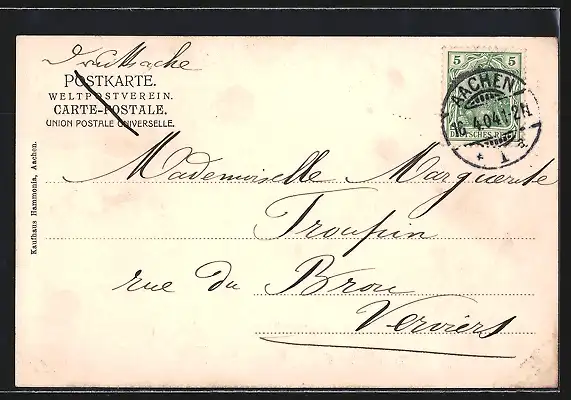 Drucksache
POSTKARTE.
WELTPOSTVEREIN.
CARTE-POSTALE.
UNION POSTALE UNIVERSELLE.
5 5
DEUTSCHES REICH
AACHEN
10.4.04.1-2N
* 1 a
Mademoiselle Marguerite
Troupin
rue du Brou
Verviers
Kaufhaus Hammonia, Aachen.